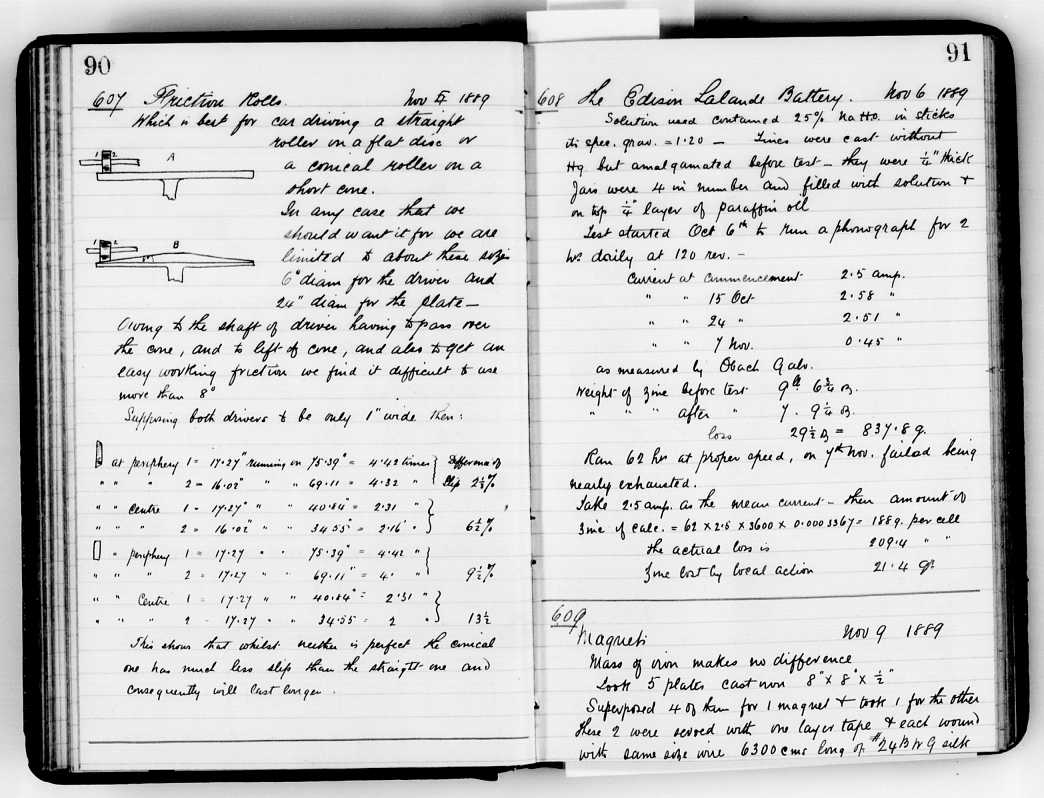 90
607 Friction Rolls. Nov 5 1889
Which is best for car driving a straight
roller on a flat disc or
a conical roller on a
short cone.
In any case that we
should want it for we are
limited to about these sizes
6" diam for the driver and
24" diam for the plate —
1 2 A
1 2 B
Owing to the shaft of driver having to pass over
the cone, and to lift of cone, and also to get an
easy working friction we find it difficult to use
more than 8°
Supposing both drivers to be only 1" wide then:
at periphery 1 = 17.27" running on 75.39" = 4.42 times } Difference of
" " " 2 = 16.02" " " 69.11 = 4.32 " } slip 2½%
" " Centre 1 = 17.27" " " 40.84" = 2.31 " }
" " " 2 = 16.02" " " 34.55" = 2.16 " } 6½%
" periphery 1 = 17.27 " " 75.39" = 4.42 " }
" " " 2 = 17.27 " " 69.11" = 4. " } 9½%
" " Centre 1 = 17.27 " " 40.84" = 2.31 " }
" " " 2 = 17.27 " " 34.55 = 2 " } 13½
This shows that whilst neither is perfect the conical
one has much less slip than the straight one and
consequently will last longer.
91
608 The Edison Lalande Battery. Nov 6 1889
Solution used contained 25% Na Ho. in sticks
its spec. grav. = 1.20 — Zincs were cast without
Hg but amalgamated before test — they were ¼" thick
Jars were 4 in number and filled with solution +
on top ¼" layer of paraffin oil
Test started Oct 6th to run a phonograph for 2
hrs daily at 120 rev. —
Current at commencement 2.5 amp.
" " 15 Oct 2.58 "
" " 24 " 2.51 "
" " 7 Nov. 0.45 "
as measured by Obach Galv.
Weight of Zinc before test 9 lb 6¾ oz.
" " " after " 7. 9¼ oz.
loss 29½ oz = 837.8 g.
Ran 62 hrs at proper speed, on 7th Nov. failed being
nearly exhausted.
Take 2.5 amp. as the mean current — then amount of
Zinc if calc. = 62 x 2.5 x 3600 x 0.0003367 = 188 g. per cell
the actual loss is 209.4 " "
Zinc lost by local action 21.4 gr.
609
Magnets Nov 9 1889
Mass of iron makes no difference
Took 5 plates cast iron 8" x 8" x ½"
Superposed 4 of them for 1 magnet + took 1 for the other
these 2 were served with one layer tape + each wound
with same size wire 6300 cms long of #24 B W G silk